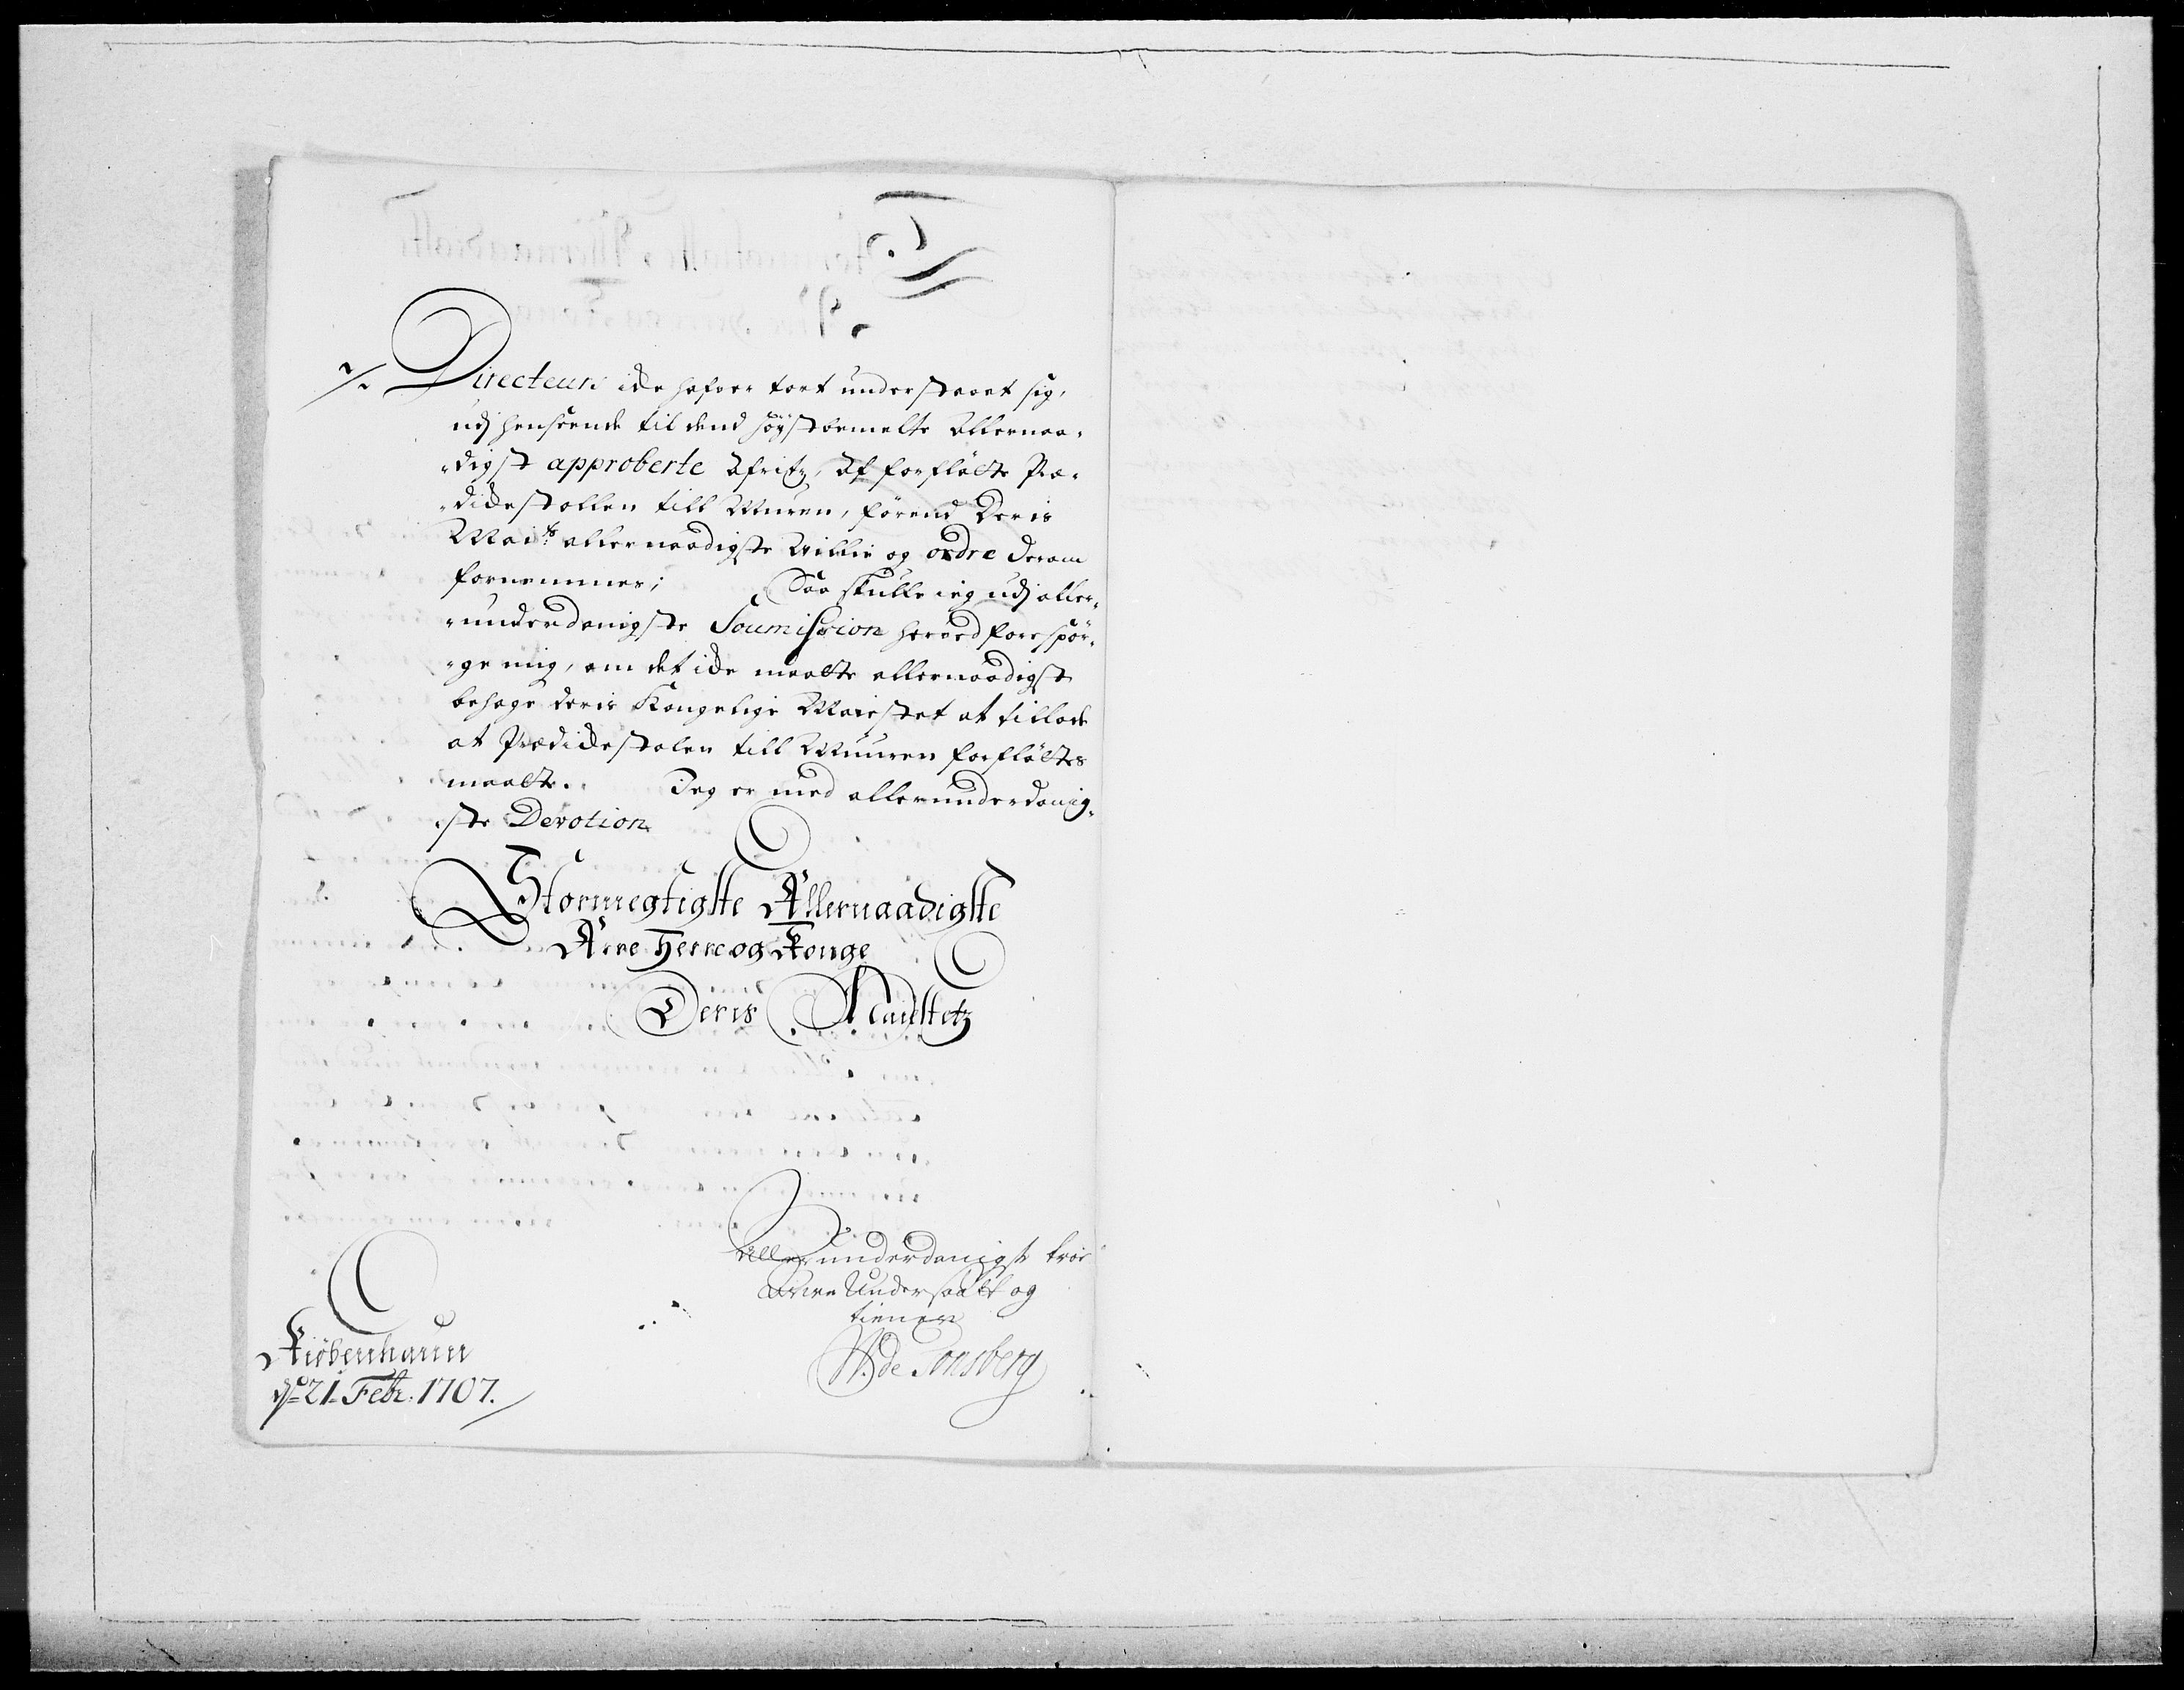 Directeurs icke hafver tort understaaet sig,
udj henseende til dend høystbemelte Allernaa-
digst approberte Afritz, at forflötte Præ-
dickestollen till Muuren, førend Deris
Maits allernaadigste Villie og ordre derom
fornemmes; Saa skulle ieg udj aller-
underdanigste Soumission herved forespør-
ge mig, om det icke maatte allernaadigst
behage deris Kongelige Maiestet at tillade
at Prædickestolen till Muuren forflöttes
maatte. Jeg er med allerunderdanig-
ste Devotion
Stormegtigste Allernaadigste
Arve Herre og Konge
Deris Maiestetz
Allerunderdanigst troe
Arve Undersaatt og
tiener
W. de Tonsberg
Kiöbenhavn
d. 21. Febr. 1707.